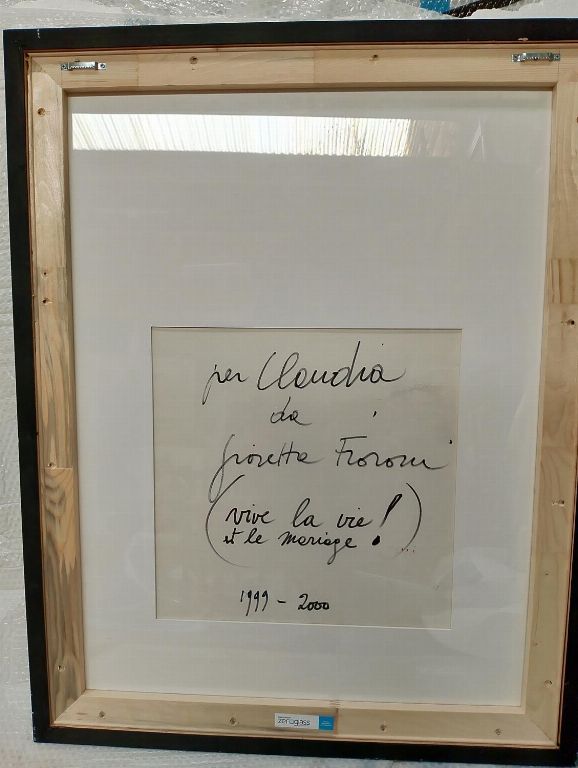 per Claudia
da
Giosetta Fioroni
(vive la vie!
et le mariage!)...
1999 - 2000
zeroglass